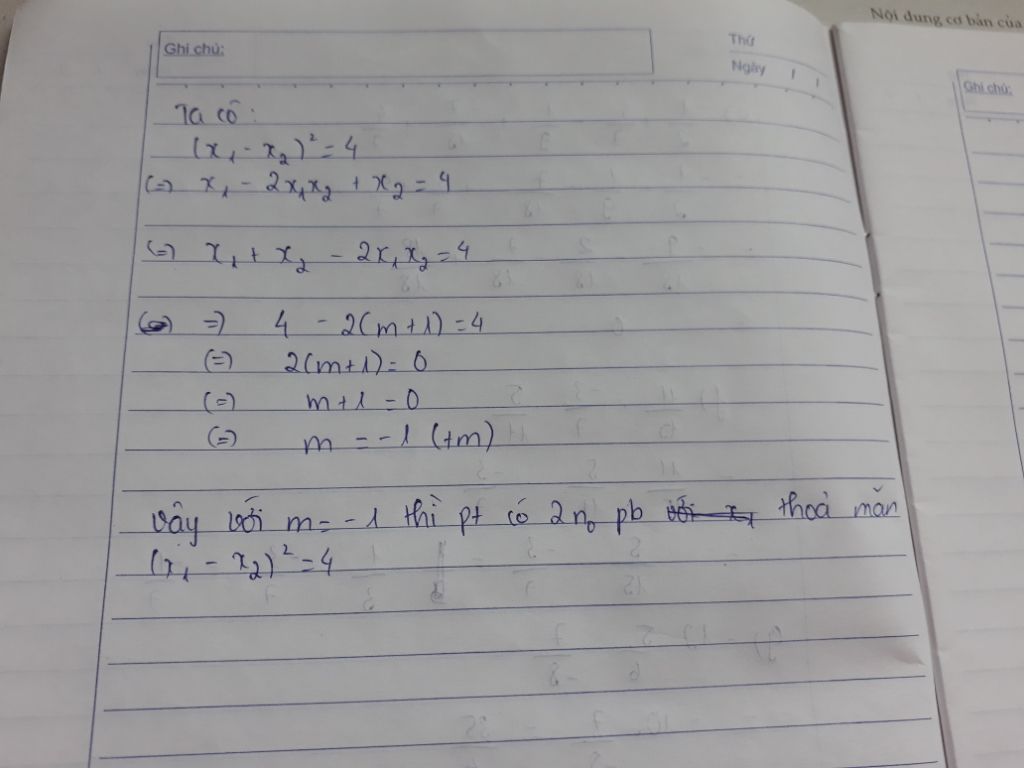 Nội dung cơ bản của
Ghi chú:
Thứ
Ngày / /
Ghi chú:
Ta có:
(x₁ - x₂)² = 4
(=) x₁ - 2x₁x₂ + x₂ = 4
(=) x₁ + x₂ - 2x₁x₂ = 4
=) 4 - 2(m+1) = 4
(=) 2(m+1) = 0
(=) m+1 = 0
(=) m = -1 (tm)
vậy với m = -1 thì pt có 2 n₀ pb với x₁ thoả mãn
(x₁ - x₂)² = 4